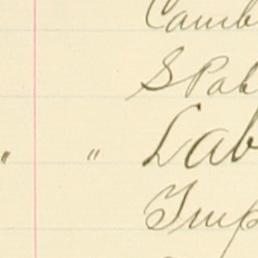 Camb
S Pab
" " Lab
Imp